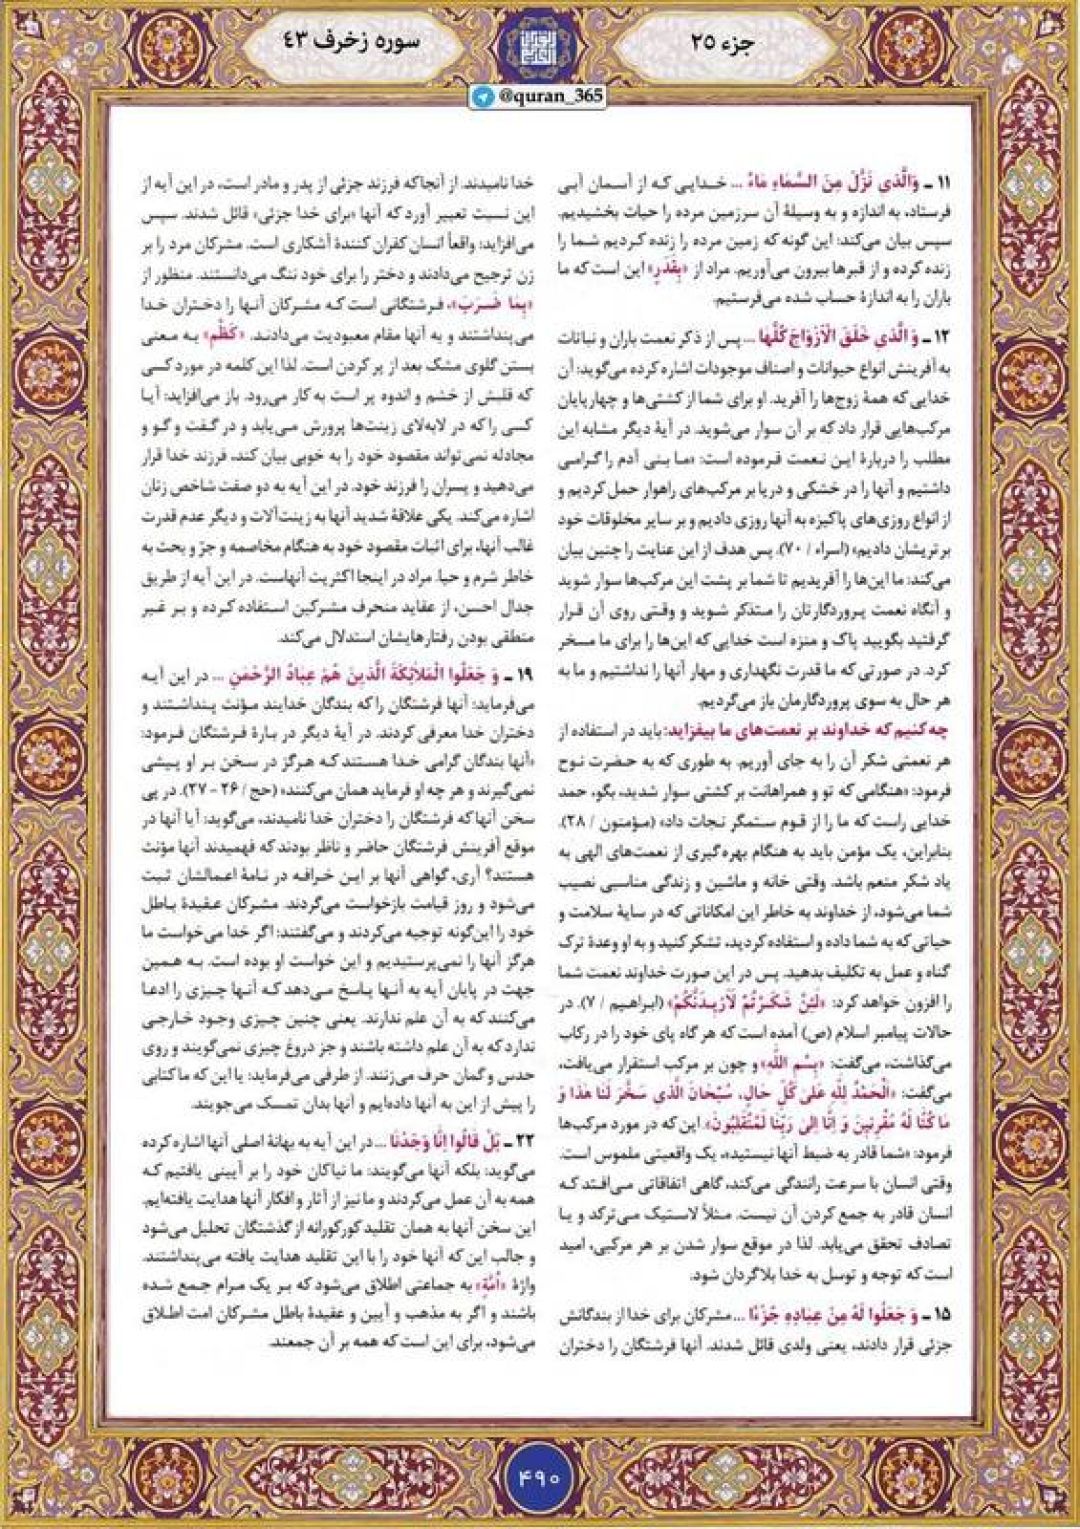 جزء ۲۵
سوره زخرف ۴۳
@quran_365
۱۱ ـ وَالَّذي نَزَّلَ مِنَ السَّماءِ ماءً ... خدایی که از آسمان آبی
فرستاد، به اندازه و به وسیلهٔ آن سرزمین مرده را حیات بخشیدیم.
سپس بیان می‌کند: این گونه که زمین مرده را زنده کردیم شما را
زنده کرده و از قبرها بیرون می‌آوریم. مراد از «بِقَدَرٍ» این است که ما
باران را به اندازهٔ حساب شده می‌فرستیم.
۱۲ ـ وَ الَّذي خَلَقَ الْاَزْواجَ كُلَّها ... پس از ذکر نعمت باران و نباتات
به آفرینش انواع حیوانات و اصناف موجودات اشاره کرده می‌گوید: آن
خدایی که همهٔ زوج‌ها را آفرید. او برای شما از کشتی‌ها و چهارپایان
مرکب‌هایی قرار داد که بر آن سوار می‌شوید. در آیهٔ دیگر مشابه این
مطلب را دربارهٔ این نعمت فرموده است: «ما بنی آدم را گرامی
داشتیم و آنها را در خشکی و دریا بر مرکب‌های راهوار حمل کردیم و
از انواع روزی‌های پاکیزه به آنها روزی دادیم و بر سایر مخلوقات خود
برتریشان دادیم» (اسراء / ۷۰). پس هدف از این عنایت را چنین بیان
می‌کند: ما این‌ها را آفریدیم تا شما بر پشت این مرکب‌ها سوار شوید
و آنگاه نعمت پروردگارتان را متذکر شوید و وقتی روی آن قرار
گرفتید بگویید پاک و منزه است خدایی که این‌ها را برای ما مسخر
کرد. در صورتی که ما قدرت نگهداری و مهار آنها را نداشتیم و ما به
هر حال به سوی پروردگارمان باز می‌گردیم.
چه کنیم که خداوند بر نعمت‌های ما بیفزاید: باید در استفاده از
هر نعمتی شکر آن را به جای آوریم. به طوری که به حضرت نوح
فرمود: «هنگامی که تو و همراهانت بر کشتی سوار شدید، بگو، حمد
خدایی راست که ما را از قوم ستمگر نجات داد» (مؤمنون / ۲۸).
بنابراین، یک مؤمن باید به هنگام بهره‌گیری از نعمت‌های الهی به
یاد شکر منعم باشد. وقتی خانه و ماشین و زندگی مناسبی نصیب
شما می‌شود، از خداوند به خاطر این امکاناتی که در سایهٔ سلامت و
حیاتی که به شما داده و استفاده کردید، تشکر کنید و به او وعدهٔ ترک
گناه و عمل به تکلیف بدهید. پس در این صورت خداوند نعمت شما
را افزون خواهد کرد: «لَئِنْ شَكَرْتُمْ لَاَزيدَنَّكُمْ» (ابراهیم / ۷). در
حالات پیامبر اسلام (ص) آمده است که هر گاه پای خود را در رکاب
می‌گذاشت، می‌گفت: «بِسْمِ اللّٰهِ» و چون بر مرکب استقرار می‌یافت،
می‌گفت: «اَلْحَمْدُ لِلّٰهِ عَلى كُلِّ حالٍ، سُبْحانَ الَّذي سَخَّرَ لَنا هذا وَ
ما كُنّا لَهُ مُقْرِنينَ وَ اِنّا اِلى رَبِّنا لَمُنْقَلِبُونَ». این که در مورد مرکب‌ها
فرمود: «شما قادر به ضبط آنها نیستید»، یک واقعیتی ملموس است.
وقتی انسان با سرعت رانندگی می‌کند، گاهی اتفاقاتی می‌افتد که
انسان قادر به جمع کردن آن نیست. مثلاً لاستیک می‌ترکد و یا
تصادف تحقق می‌یابد. لذا در موقع سوار شدن بر هر مرکبی، امید
است که توجه و توسل به خدا بلاگردان شود.
۱۵ ـ وَ جَعَلُوا لَهُ مِنْ عِبادِهِ جُزْءًا ... مشرکان برای خدا از بندگانش
جزئی قرار دادند، یعنی ولدی قائل شدند. آنها فرشتگان را دختران
خدا نامیدند. از آنجا که فرزند جزئی از پدر و مادر است، در این آیه از
این نسبت تعبیر آورد که آنها «برای خدا جزئی» قائل شدند. سپس
می‌افزاید: واقعاً انسان کفران کنندهٔ آشکاری است. مشرکان مرد را بر
زن ترجیح می‌دادند و دختر را برای خود ننگ می‌دانستند. منظور از
«بِما ضَرَبَ»، فرشتگانی است که مشرکان آنها را دختران خدا
می‌پنداشتند و به آنها مقام معبودیت می‌دادند. «كَظْم» به معنی
بستن گلوی مشک بعد از پر کردن است. لذا این کلمه در مورد کسی
که قلبش از خشم و اندوه پر است به کار می‌رود. باز می‌افزاید: آیا
کسی را که در لابه‌لای زینت‌ها پرورش می‌یابد و در گفت و گو و
مجادله نمی‌تواند مقصود خود را به خوبی بیان کند، فرزند خدا قرار
می‌دهید و پسران را فرزند خود. در این آیه به دو صفت شاخص زنان
اشاره می‌کند. یکی علاقهٔ شدید آنها به زینت‌آلات و دیگر عدم قدرت
غالب آنها، برای اثبات مقصود خود به هنگام مخاصمه و جرّ و بحث به
خاطر شرم و حیا. مراد در اینجا اکثریت آنهاست. در این آیه از طریق
جدال احسن، از عقاید منحرف مشرکین استفاده کرده و بر غیر
منطقی بودن رفتارهایشان استدلال می‌کند.
۱۹ ـ وَ جَعَلُوا الْمَلائِكَةَ الَّذينَ هُمْ عِبادُ الرَّحْمٰنِ ... در این آیه
می‌فرماید: آنها فرشتگان را که بندگان خدایند مؤنث پنداشتند و
دختران خدا معرفی کردند. در آیهٔ دیگر در بارهٔ فرشتگان فرمود:
«آنها بندگان گرامی خدا هستند که هرگز در سخن بر او پیشی
نمی‌گیرند و هر چه او فرماید همان می‌کنند» (حج / ۲۶ - ۲۷). در پی
سخن آنها که فرشتگان را دختران خدا نامیدند، می‌گوید: آیا آنها در
موقع آفرینش فرشتگان حاضر و ناظر بودند که فهمیدند آنها مؤنث
هستند؟ آری، گواهی آنها بر این خرافه در نامهٔ اعمالشان ثبت
می‌شود و روز قیامت بازخواست می‌گردند. مشرکان عقیدهٔ باطل
خود را این‌گونه توجیه می‌کردند و می‌گفتند: اگر خدا می‌خواست ما
هرگز آنها را نمی‌پرستیدیم و این خواست او بوده است. به همین
جهت در پایان آیه به آنها پاسخ می‌دهد که آنها چیزی را ادعا
می‌کنند که به آن علم ندارند. یعنی چنین چیزی وجود خارجی
ندارد که به آن علم داشته باشند و جز دروغ چیزی نمی‌گویند و روی
حدس و گمان حرف می‌زنند. از طرفی می‌فرماید: یا این که ما کتابی
را پیش از این به آنها داده‌ایم و آنها بدان تمسک می‌جویند.
۲۲ ـ بَلْ قالُوا اِنّا وَجَدْنا ... در این آیه به بهانهٔ اصلی آنها اشاره کرده
می‌گوید: بلکه آنها می‌گویند: ما نیاکان خود را بر آیینی یافتیم که
همه به آن عمل می‌کردند و ما نیز از آثار و افکار آنها هدایت یافته‌ایم.
این سخن آنها به همان تقلید کورکورانه از گذشتگان تحلیل می‌شود
و جالب این که آنها خود را با این تقلید هدایت یافته می‌پنداشتند.
واژهٔ «اُمَّةٍ» به جماعتی اطلاق می‌شود که بر یک مرام جمع شده
باشند و اگر به مذهب و آیین و عقیدهٔ باطل مشرکان امت اطلاق
می‌شود، برای این است که همه بر آن جمعند.
۴۹۰